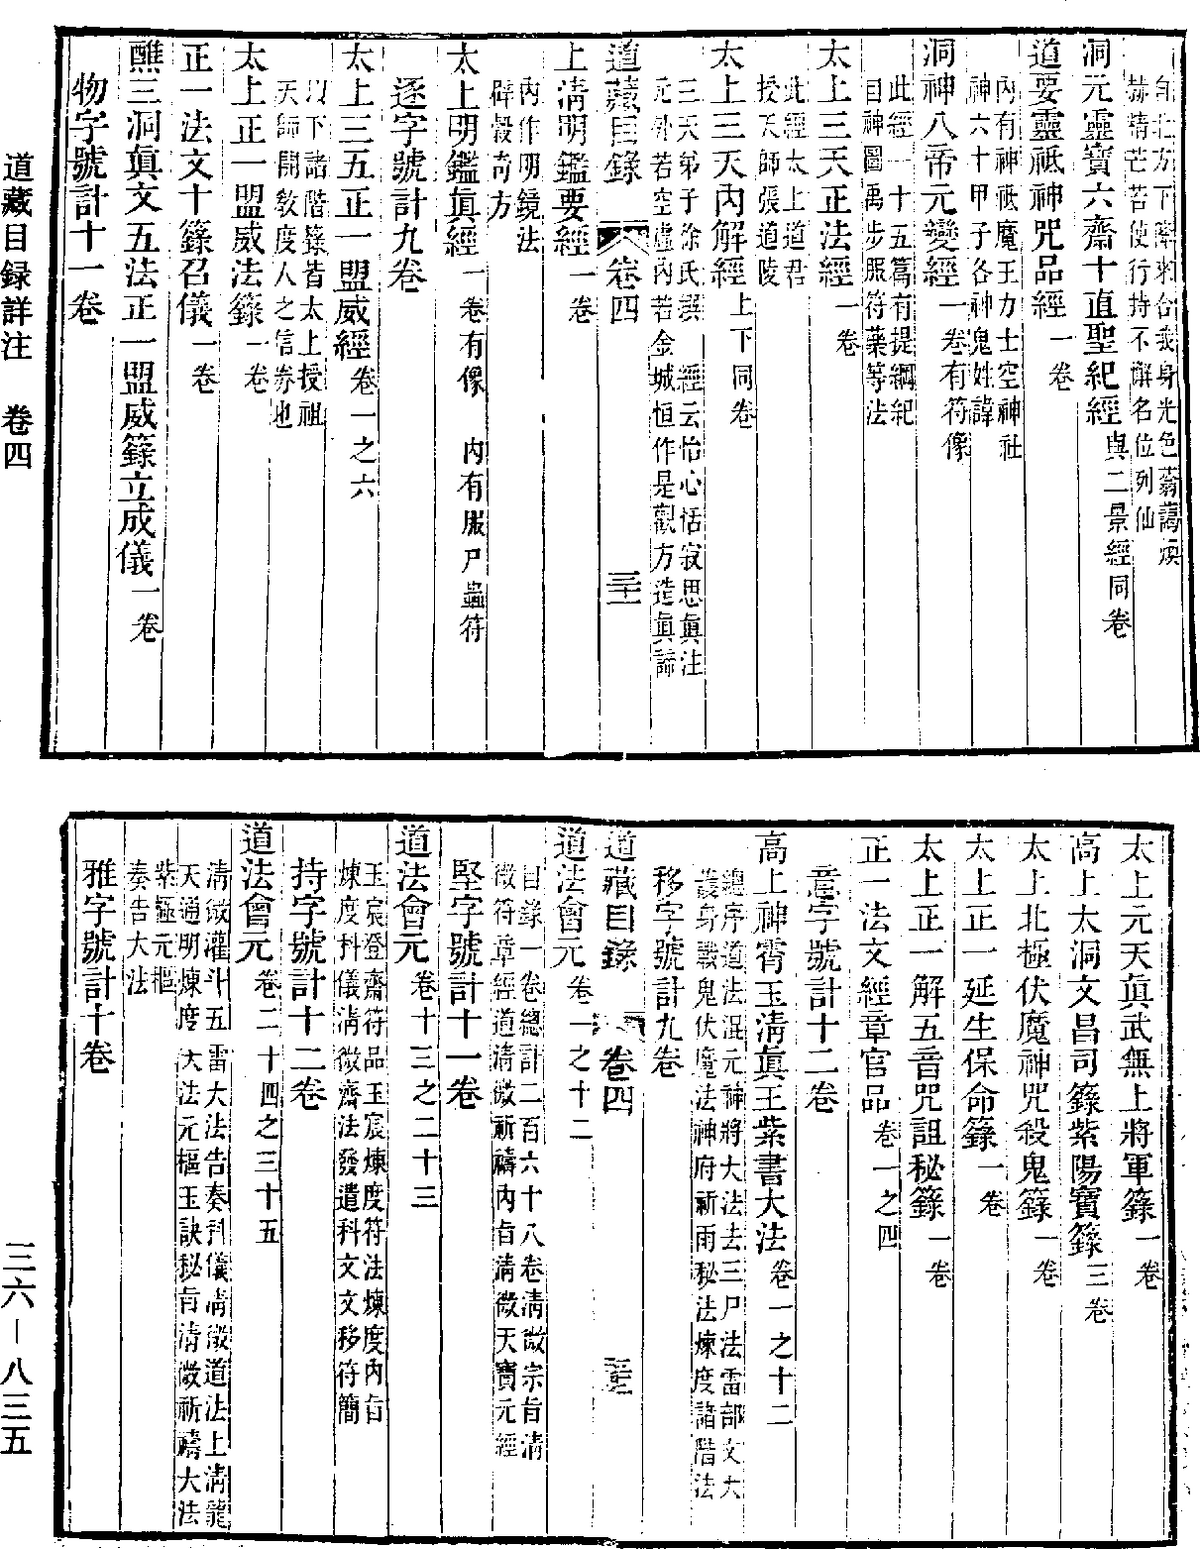 赫精芒苦使行持不懈名位列仙
洞元靈寶六齋十直聖紀經與二景經同卷
道要靈祇神咒品經一卷
內有神祇魔王力士空神社
神六十甲子各神鬼姓諱
洞神八帝元變經一卷有符像
此經一十五篇有提綱紀
目神圖禹步服符藥等法
太上三天正法經一卷
此經太上道君
授天師張道陵
太上三天內解經上下同卷
三天弟子徐氏撰 經云怡心恬寂思眞注
元外若空虛內若金城恒作是觀方造眞諦
道藏目錄 卷四 三十一
上清明鑑要經一卷
內作明鏡法
辟穀奇方
太上明鑑眞經一卷有像 內有服尸蟲符
逐字號計九卷
太上三五正一盟威經卷一之六
以下諸階籙皆太上授祖
天師開敎度人之信劵也
太上正一盟威法籙一卷
正一法文十籙召儀一卷
醮三洞眞文五法正一盟威籙立成儀一卷
物字號計十一卷
道藏目録詳注 卷四
太上元天眞武無上將軍籙一卷
高上太洞文昌司籙紫陽寶籙三卷
太上北極伏魔神咒殺鬼籙一卷
太上正一延生保命籙一卷
太上正一解五音咒詛秘籙一卷
正一法文經章官品卷一之四
意字號計十二卷
高上神霄玉淸眞王紫書大法卷一之十二
總序道法混元神將大法去三尸法雷部文大
叢身戰鬼伏魔法神府祈雨秘法煉度諸階法
移字號計九卷
道藏目錄 卷四
道法會元卷一之十二
目錄一卷總計二百六十八卷淸微宗旨淸
微符章經道淸微祈禱內旨淸微天寶元經
堅字號計十一卷
道法會元卷十三之二十三
玉宸登齋符品玉宸煉度符法煉度內旨
煉度科儀淸微齋法發遣科文文移符簡
持字號計十二卷
道法會元卷二十四之三十五
淸微灌斗五雷大法告奏科儀淸微道法上淸龍
天通明煉度大法元樞玉訣秘旨淸微祈禱大法
紫極元樞
奏告大法
雅字號計十卷
三六—八三五